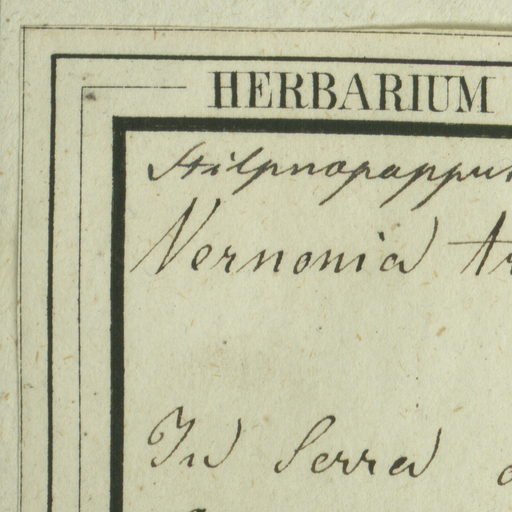 HERBARIUM
Stilpnopappus
Vernonia tr
In Serra